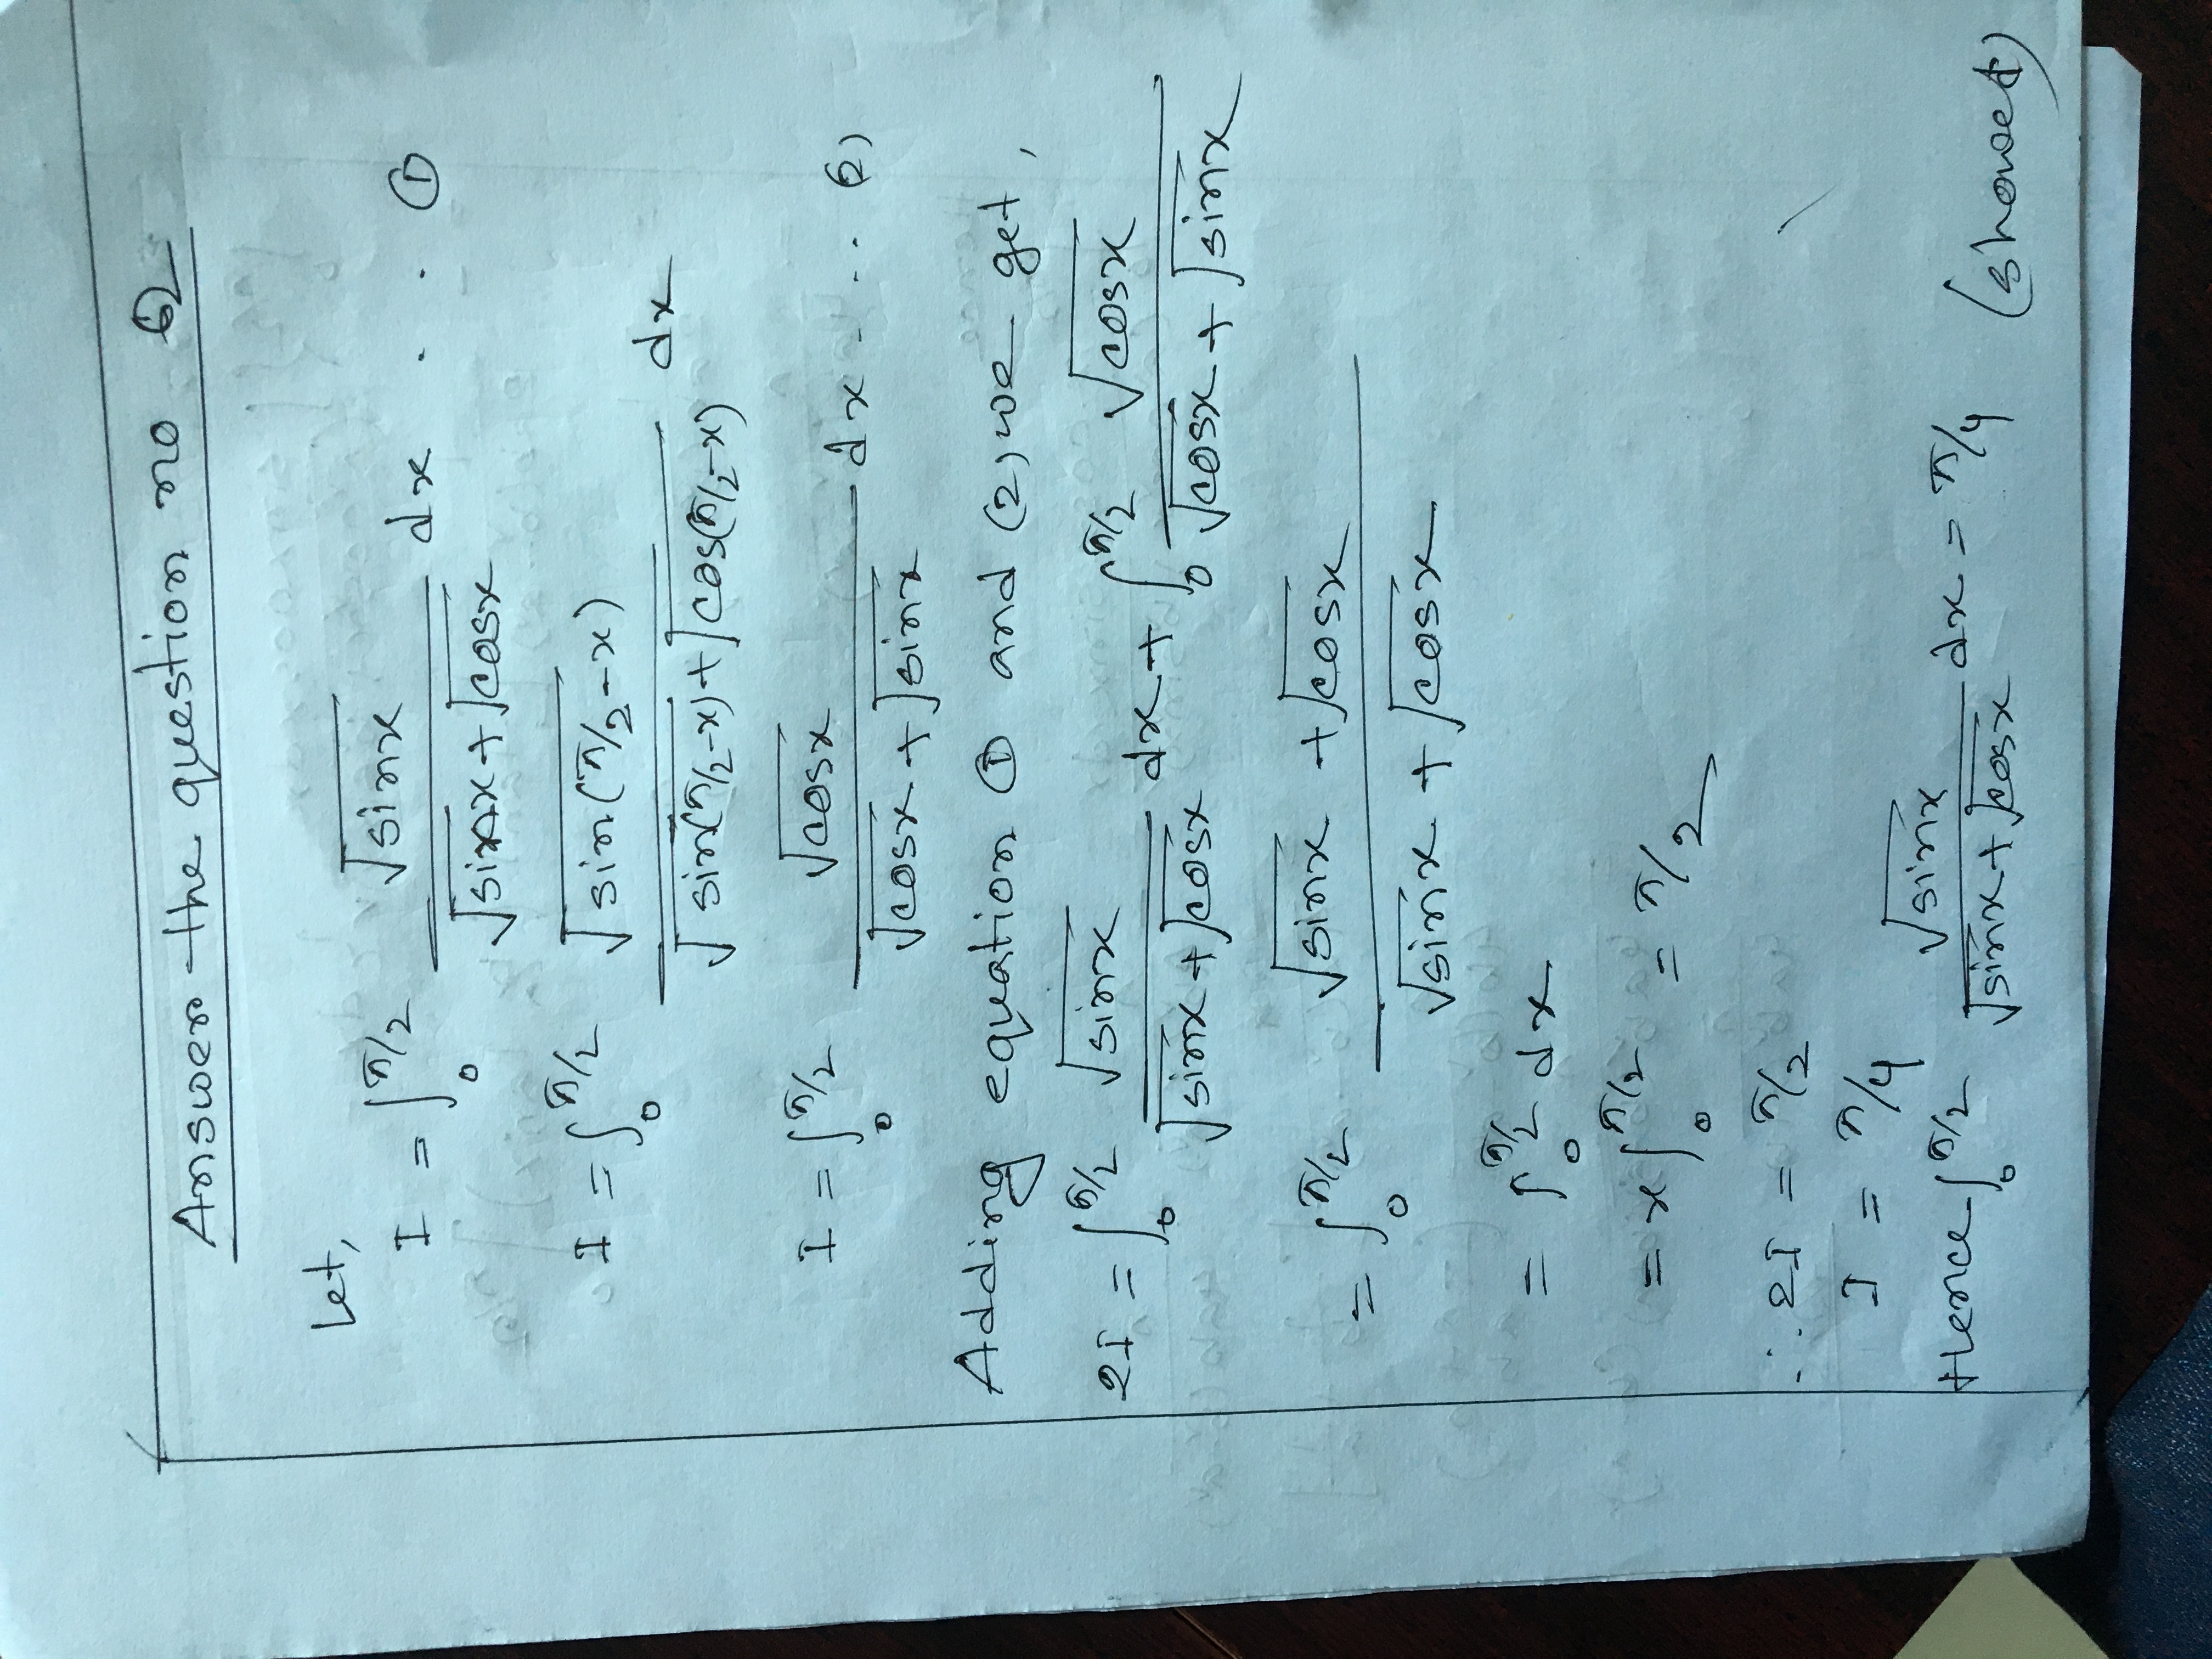 Answer the question no 2
Let,
I = ∫₀^π/2 √sinx / (√sinx + √cosx) dx . . ①
I = ∫₀^π/2 √sin(π/2-x) / (√sin(π/2-x) + √cos(π/2-x)) dx
I = ∫₀^π/2 √cosx / (√cosx + √sinx) dx - . .. (2)
Adding equation ① and (2) we get,
2I = ∫₀^π/2 √sinx / (√sinx + √cosx) dx + ∫₀^π/2 √cosx / (√cosx + √sinx)
= ∫₀^π/2 (√sinx + √cosx) / (√sinx + √cosx)
= ∫₀^π/2 dx
= x∫₀^π/2 = π/2
∴ 2I = π/2
I = π/4
Hence ∫₀^π/2 √sinx / (√sinx + √cosx) dx = π/4 (showed)